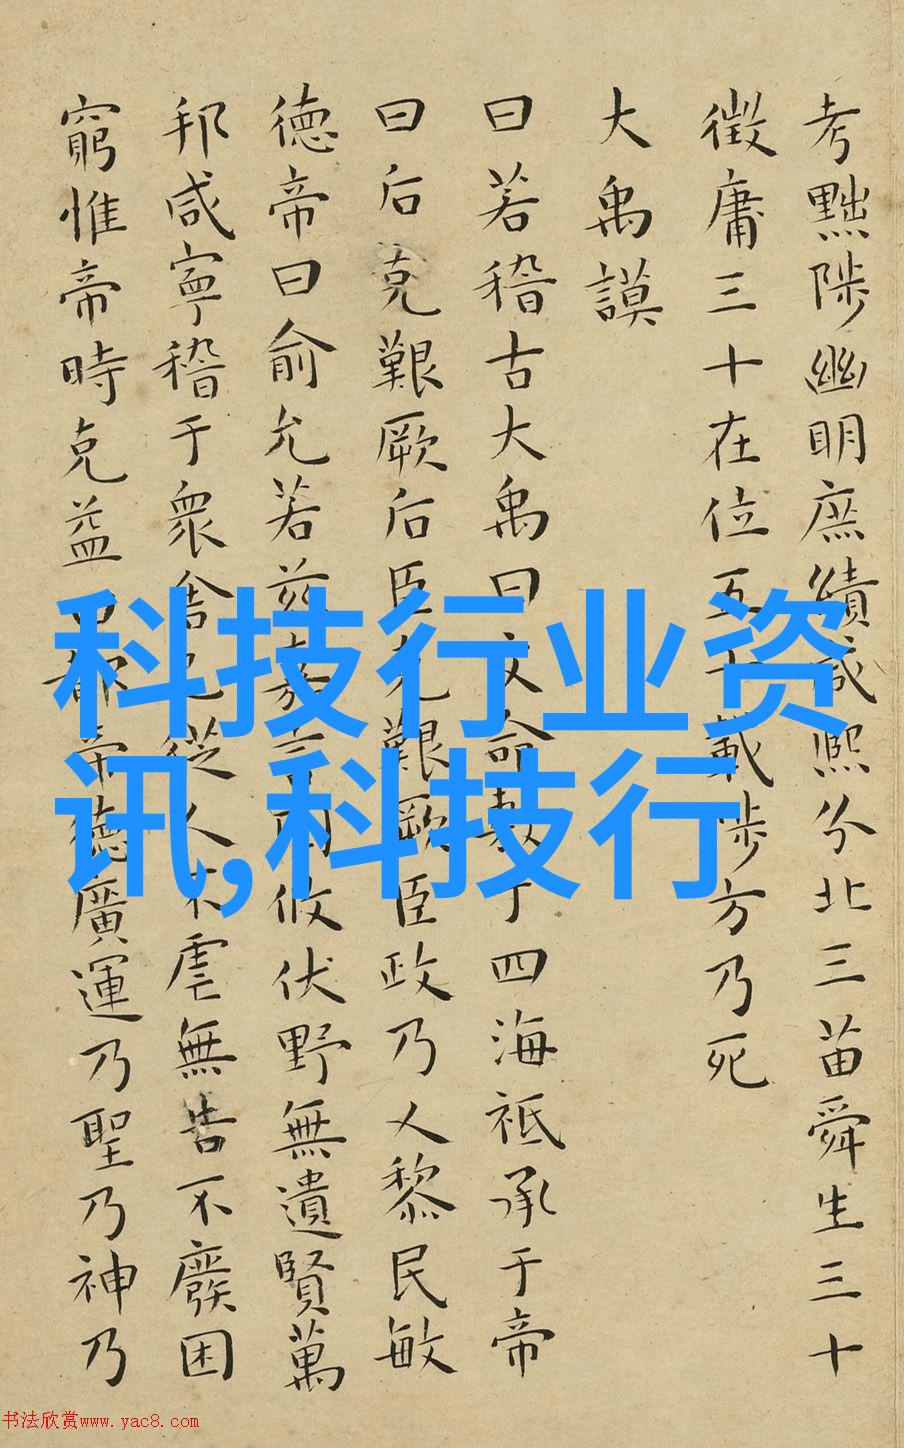 考黜陟幽明庶績咸熙分北三苗舜生三十
徵庸三十在位五十載陟方乃死
大禹謨
曰若稽古大禹曰文命敷于四海祗承于帝
曰后克艱厥后臣克艱厥臣政乃乂黎民敏
德帝曰俞允若茲嘉言罔攸伏野無遺賢萬
邦咸寧稽于衆舍己從人不虐無告不廢困
窮惟帝時克益曰都帝德廣運乃聖乃神乃
科技行业资
讯,科技行
书法欣赏www.yac8.com